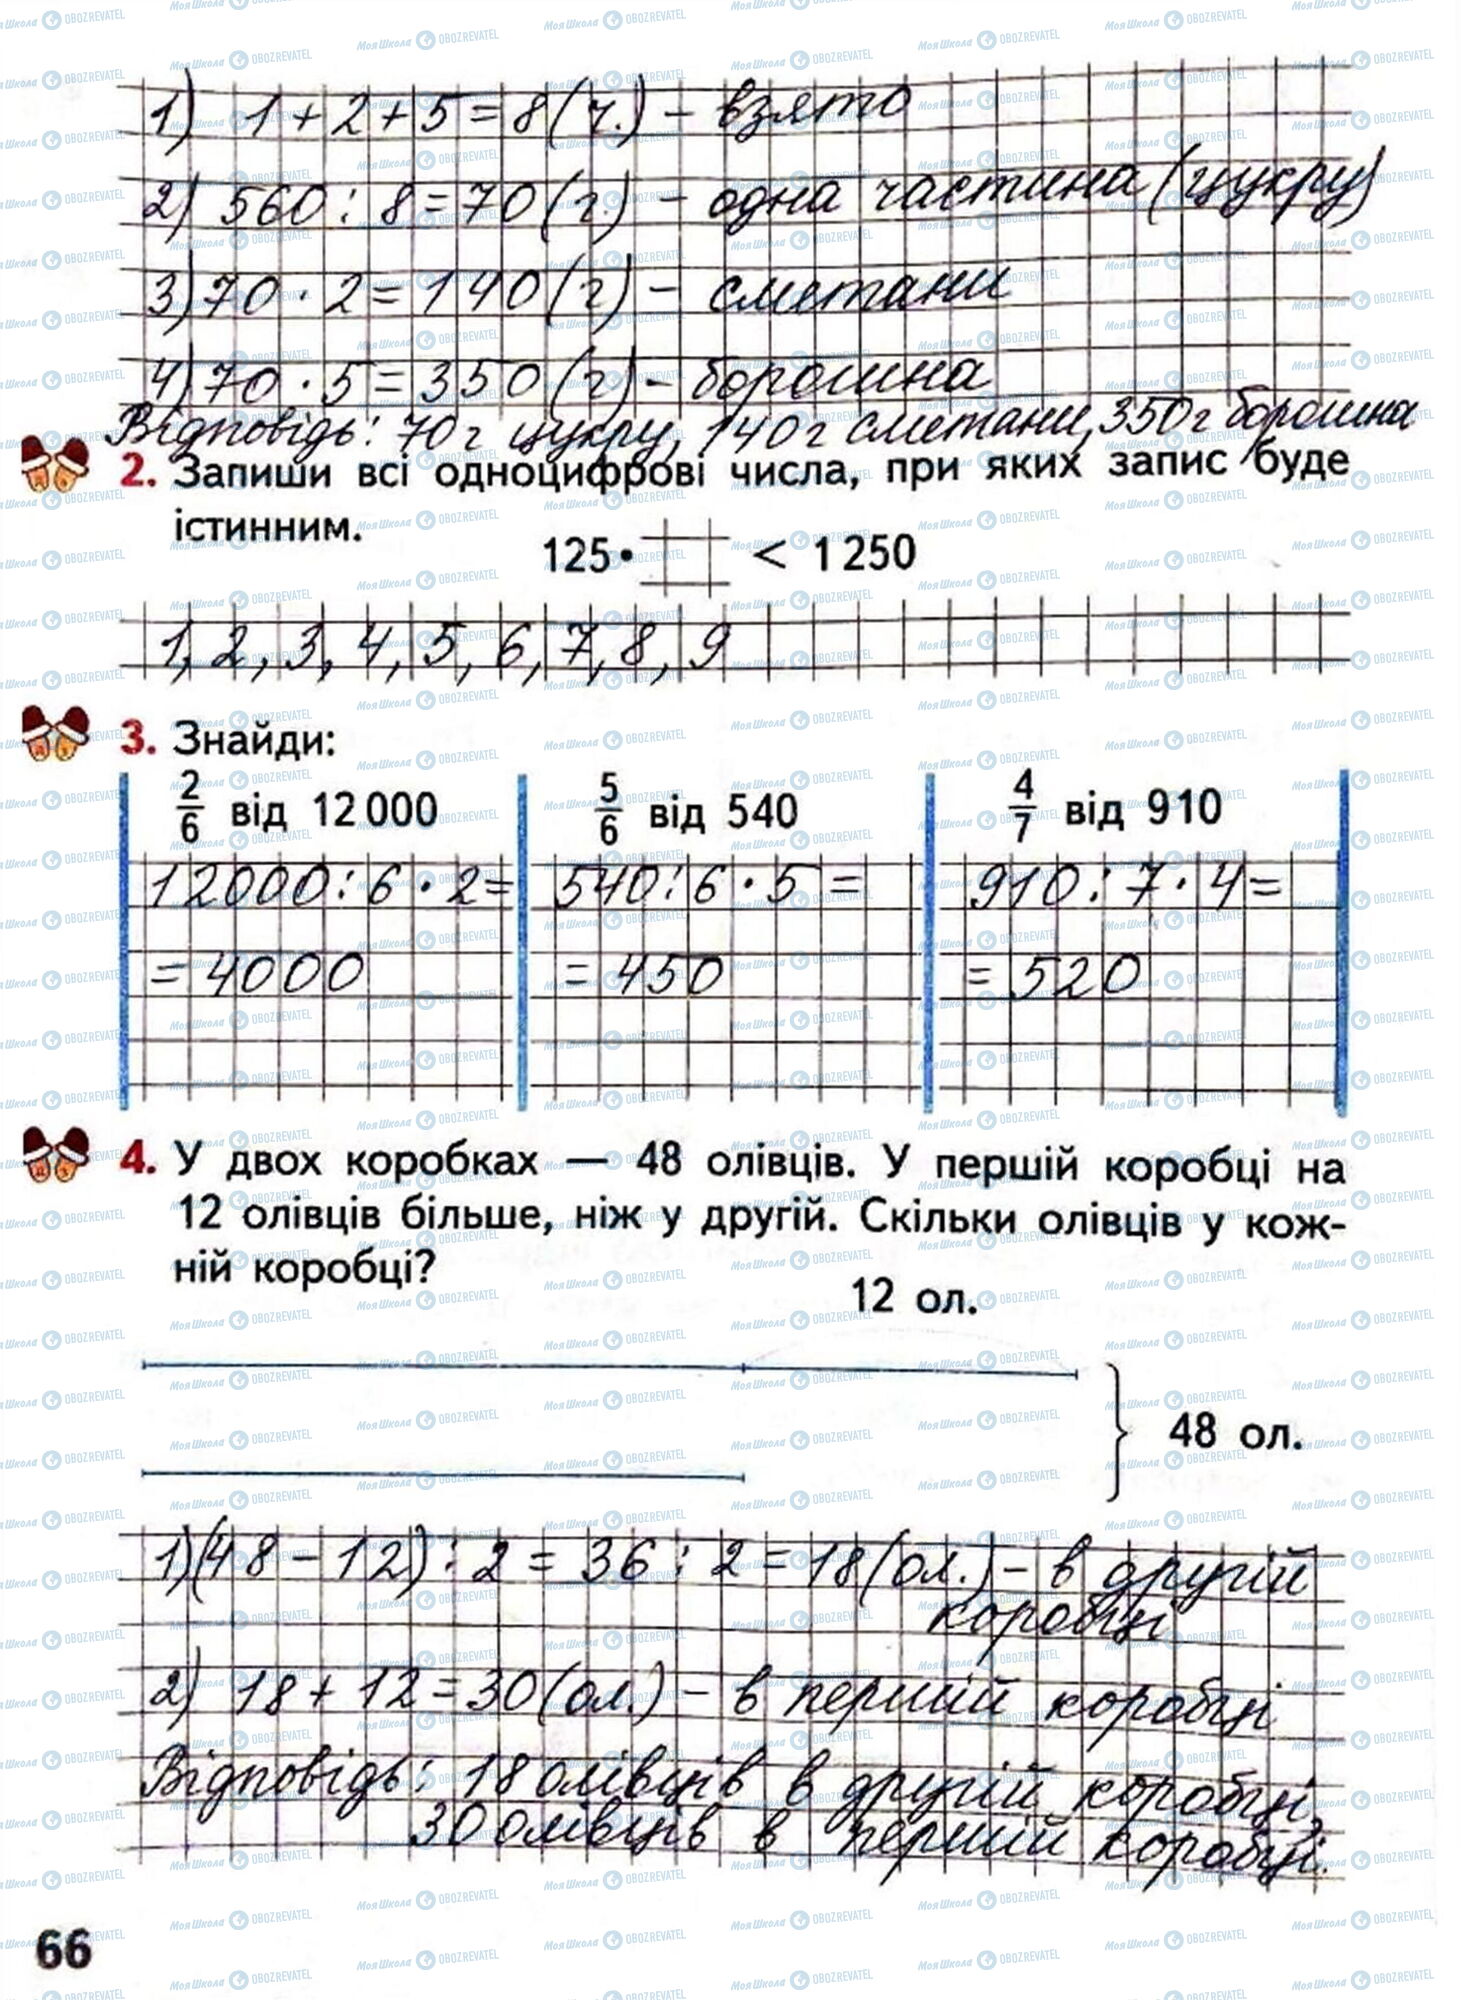 1) 1+2+5=8(ч.) – взято
2) 560:8=70(г.) – одна частина (цукру)
3) 70·2=140(г) – сметани
4) 70·5=350(г) – борошна
Відповідь: 70г цукру, 140г сметани, 350г борошна
2. Запиши всі одноцифрові числа, при яких запис буде
істинним.
125· < 1250
1, 2, 3, 4, 5, 6, 7, 8, 9
3. Знайди:
2/6 від 12000 5/6 від 540 4/7 від 910
12000:6·2= 540:6·5= 910:7·4=
=4000 =450 =520
4. У двох коробках — 48 олівців. У першій коробці на
12 олівців більше, ніж у другій. Скільки олівців у кож-
ній коробці?
12 ол.
48 ол.
1)(48-12):2=36:2=18(ол.) – в другій
коробці
2) 18+12=30(ол.) – в першій коробці
Відповідь: 18 олівців в другій коробці,
30 олівців в першій коробці.
66
МояШкола OBOZREVATEL